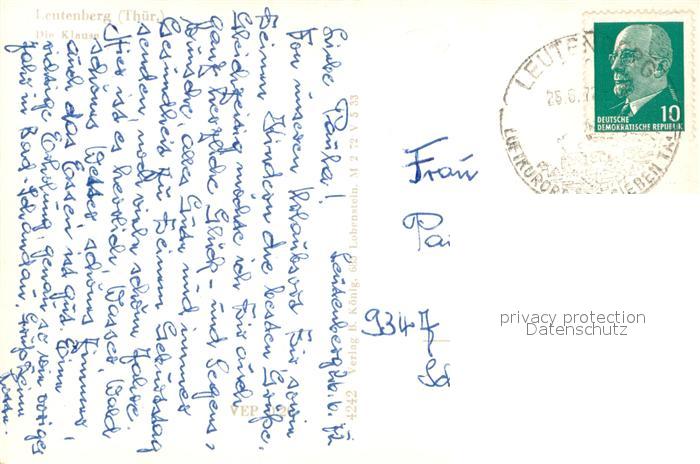 Leutenberg (Thür.)
Die Klause
Leutenberg, d.
Liebe Paula!
Von unserem Urlaubsort Dir, sowie
Deinen Kindern die besten Grüße.
Gleichzeitig möchte ich Dir auch
ganz herzliche Glück- und Segens-
wünsche, alles Gute und immer
Gesundheit zu Deinem Geburtstag
senden, noch viele schöne Jahre.
Hier ist es herrlich, Wasser, Wald
schönes Wetter, schönes Zimmer,
auch das Essen ist gut. Eine
richtige Erholung, genau so wie voriges
Jahr in Bad Schandau.
VEB
4242 Verlag B. König, Lobenstein. M 2 72 V 5 33
LEUTEN
LUFTKURORT
SIEBEN TÄ
DEUTSCHE
DEMOKRATISCHE REPUBLIK
10
Frau
Pai
9347
privacy protection
Datenschutz